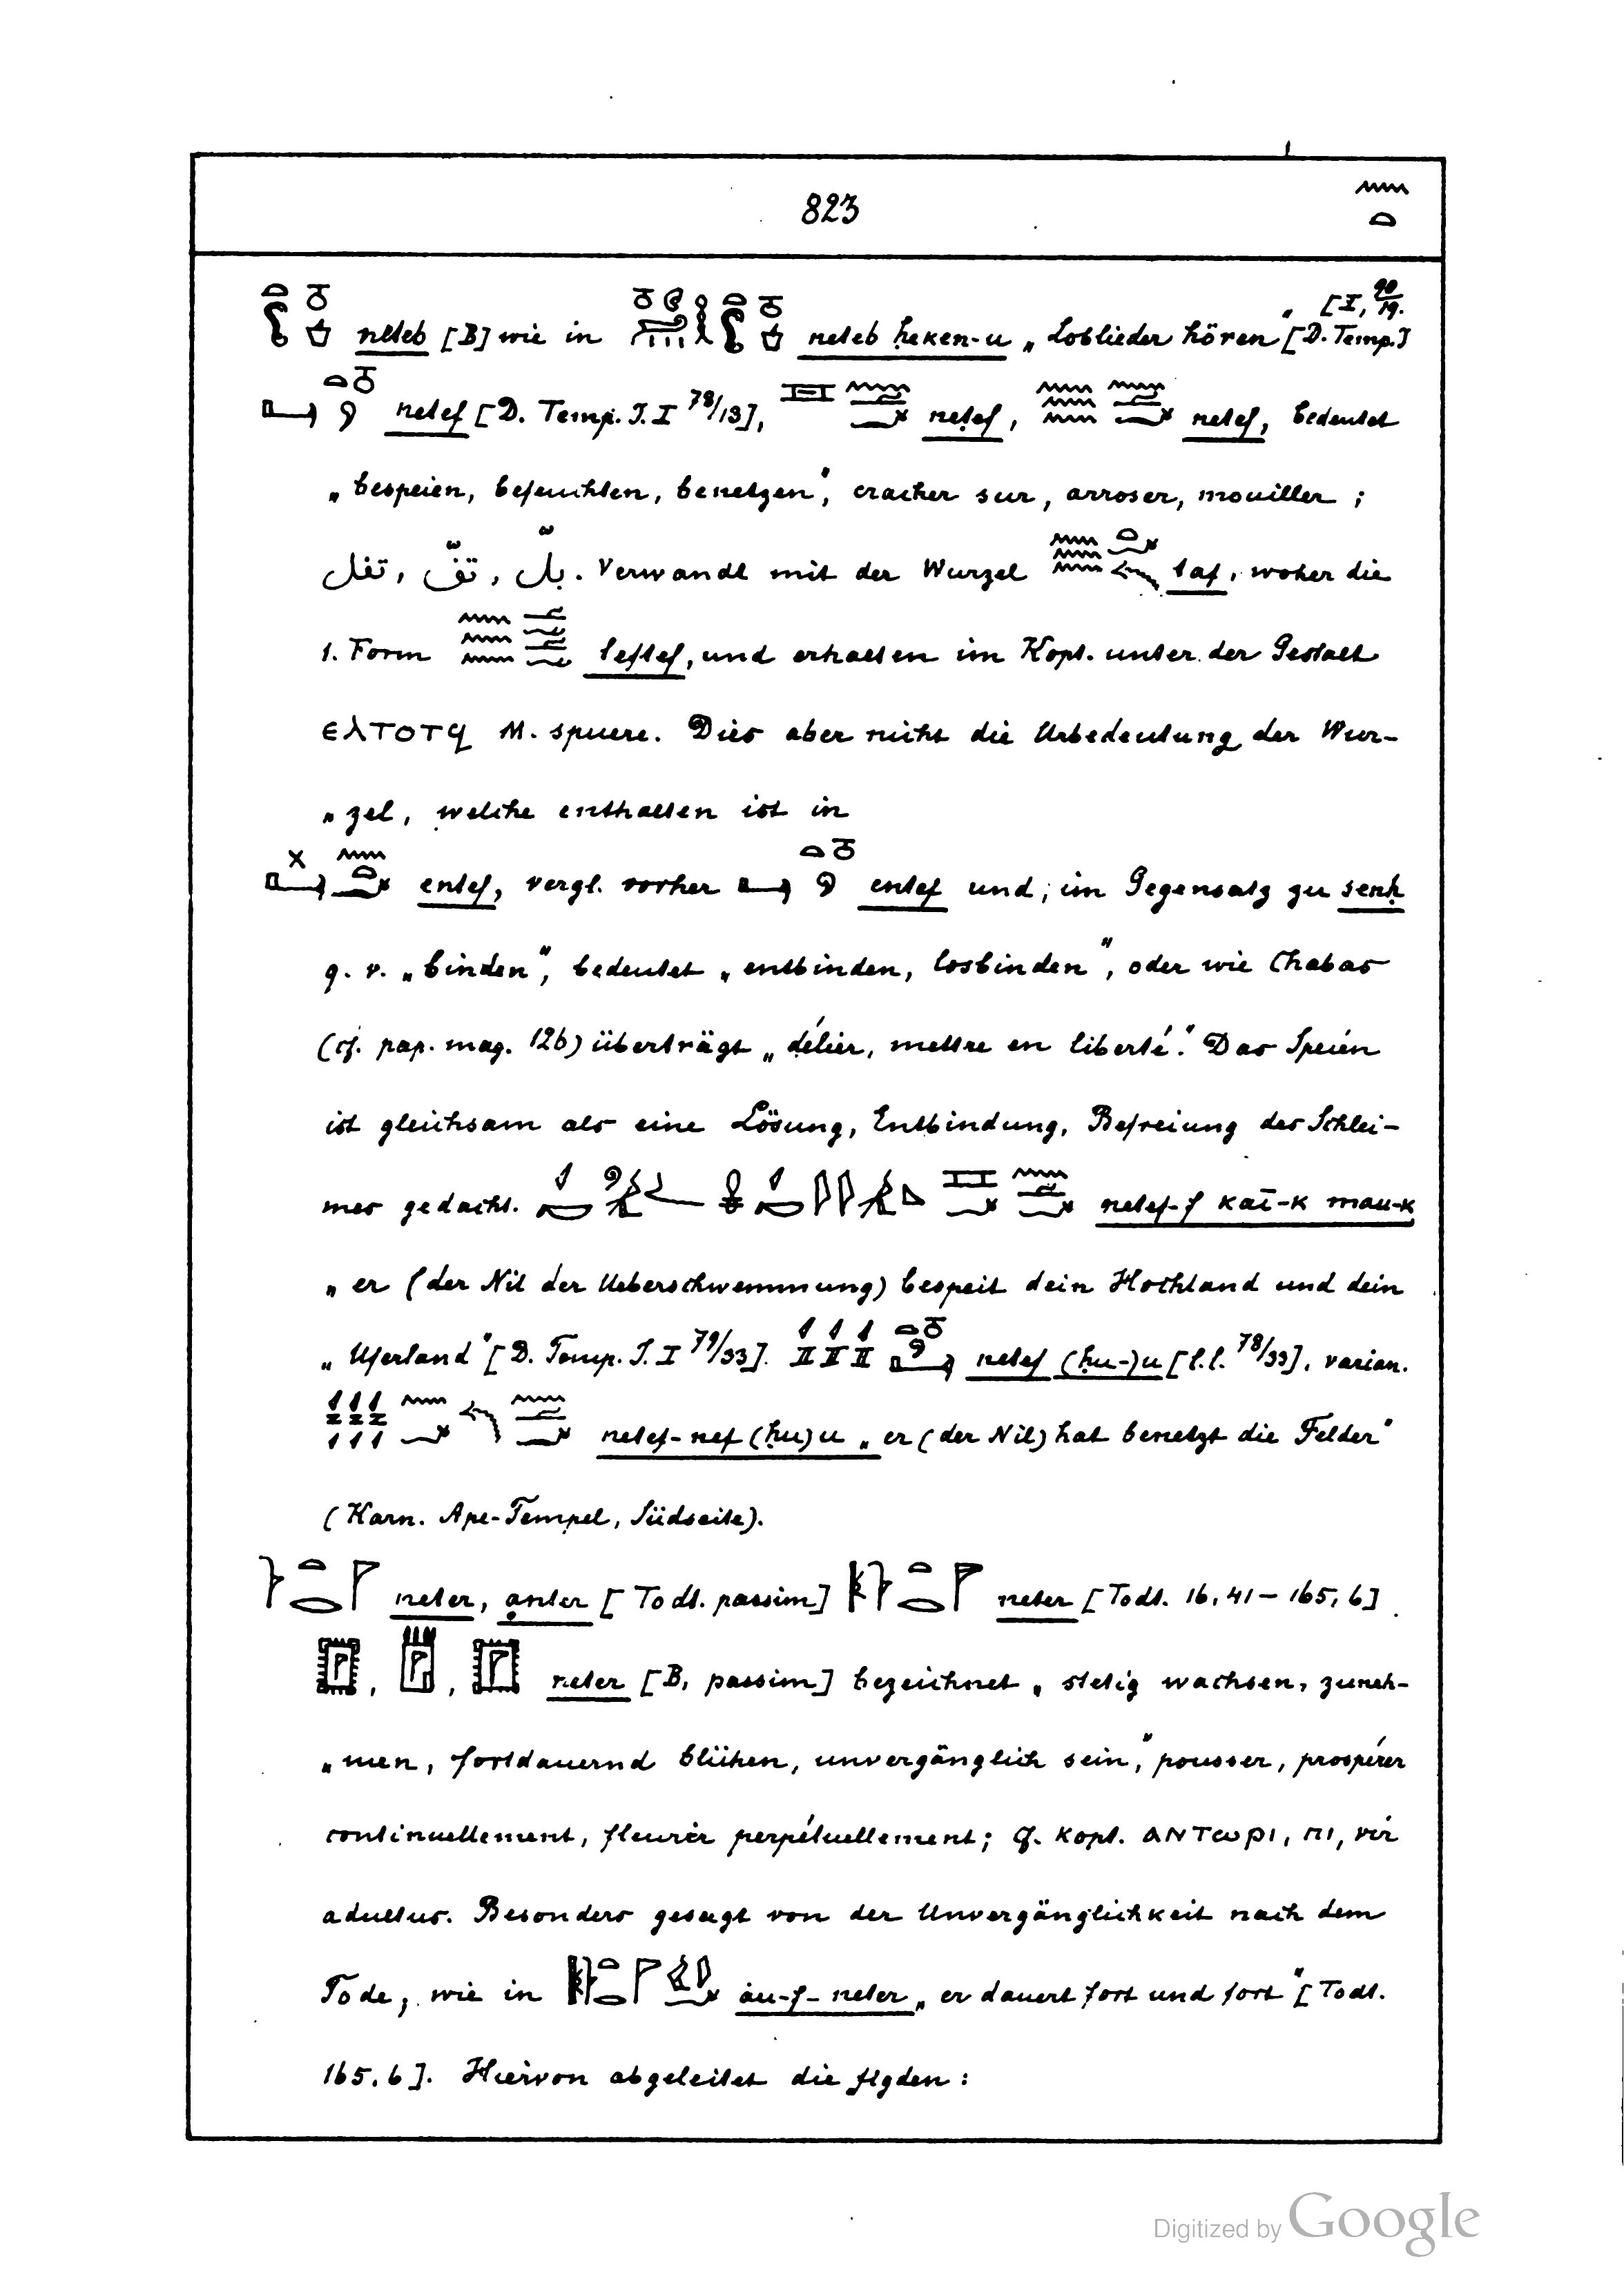 823
[I, 90/19.
neteb [B] wie in neteb ḥeken-u „Loblieder hören" [D. Temp. I
netef [D. Temp. I. I 78/13], netef, netef, bedeutet
„bespeien, befeuchten, benetzen", cracher sur, arroser, mouiller;
تفل, تفّ, بلّ. Verwandt mit der Wurzel taf, woher die
1. Form teftef, und erhalten im Kopt. unter der Gestalt
ⲉⲗⲧⲟⲧϥ M. spuere. Dies aber nicht die Urbedeutung der Wur-
„zel, welche enthalten ist in
entef, vergl. vorher entef und, im Gegensatz zu senḥ
q. v. „binden", bedeutet „entbinden, losbinden", oder wie Chabas
(cf. pap. mag. 126) überträgt „délier, mettre en liberté". Das Speien
ist gleichsam als eine Lösung, Entbindung, Befreiung des Schlei-
mes gedacht. netef-f kaī-k mau-k
„er (der Nil der Ueberschwemmung) bespeit dein Hochland und dein
„Uferland" [D. Temp. I. I 79/33]. netef (ḥu-)u [l.l. 78/33], varian.
netef-nef (ḥu)u „er (der Nil) hat benetzt die Felder"
(Karn. Ape-Tempel, Südseite).
neter, ạnter [Todt. passim] neter [Todt. 16,41 – 165,6]
, , neter [B, passim] bezeichnet „stetig wachsen, zuneh-
„men, fortdauernd blühen, unvergänglich sein", pousser, prospérer
continuellement, fleurir perpétuellement; cf. kopt. ⲁⲛⲧⲱⲣⲓ, ⲡⲓ, vir
adultus. Besonders gesagt von der Unvergänglichkeit nach dem
Tode, wie in áu-f-neter „er dauert fort und fort" [Todt.
165,6]. Hiervon abgeleitet die flgden:
Digitized by Google